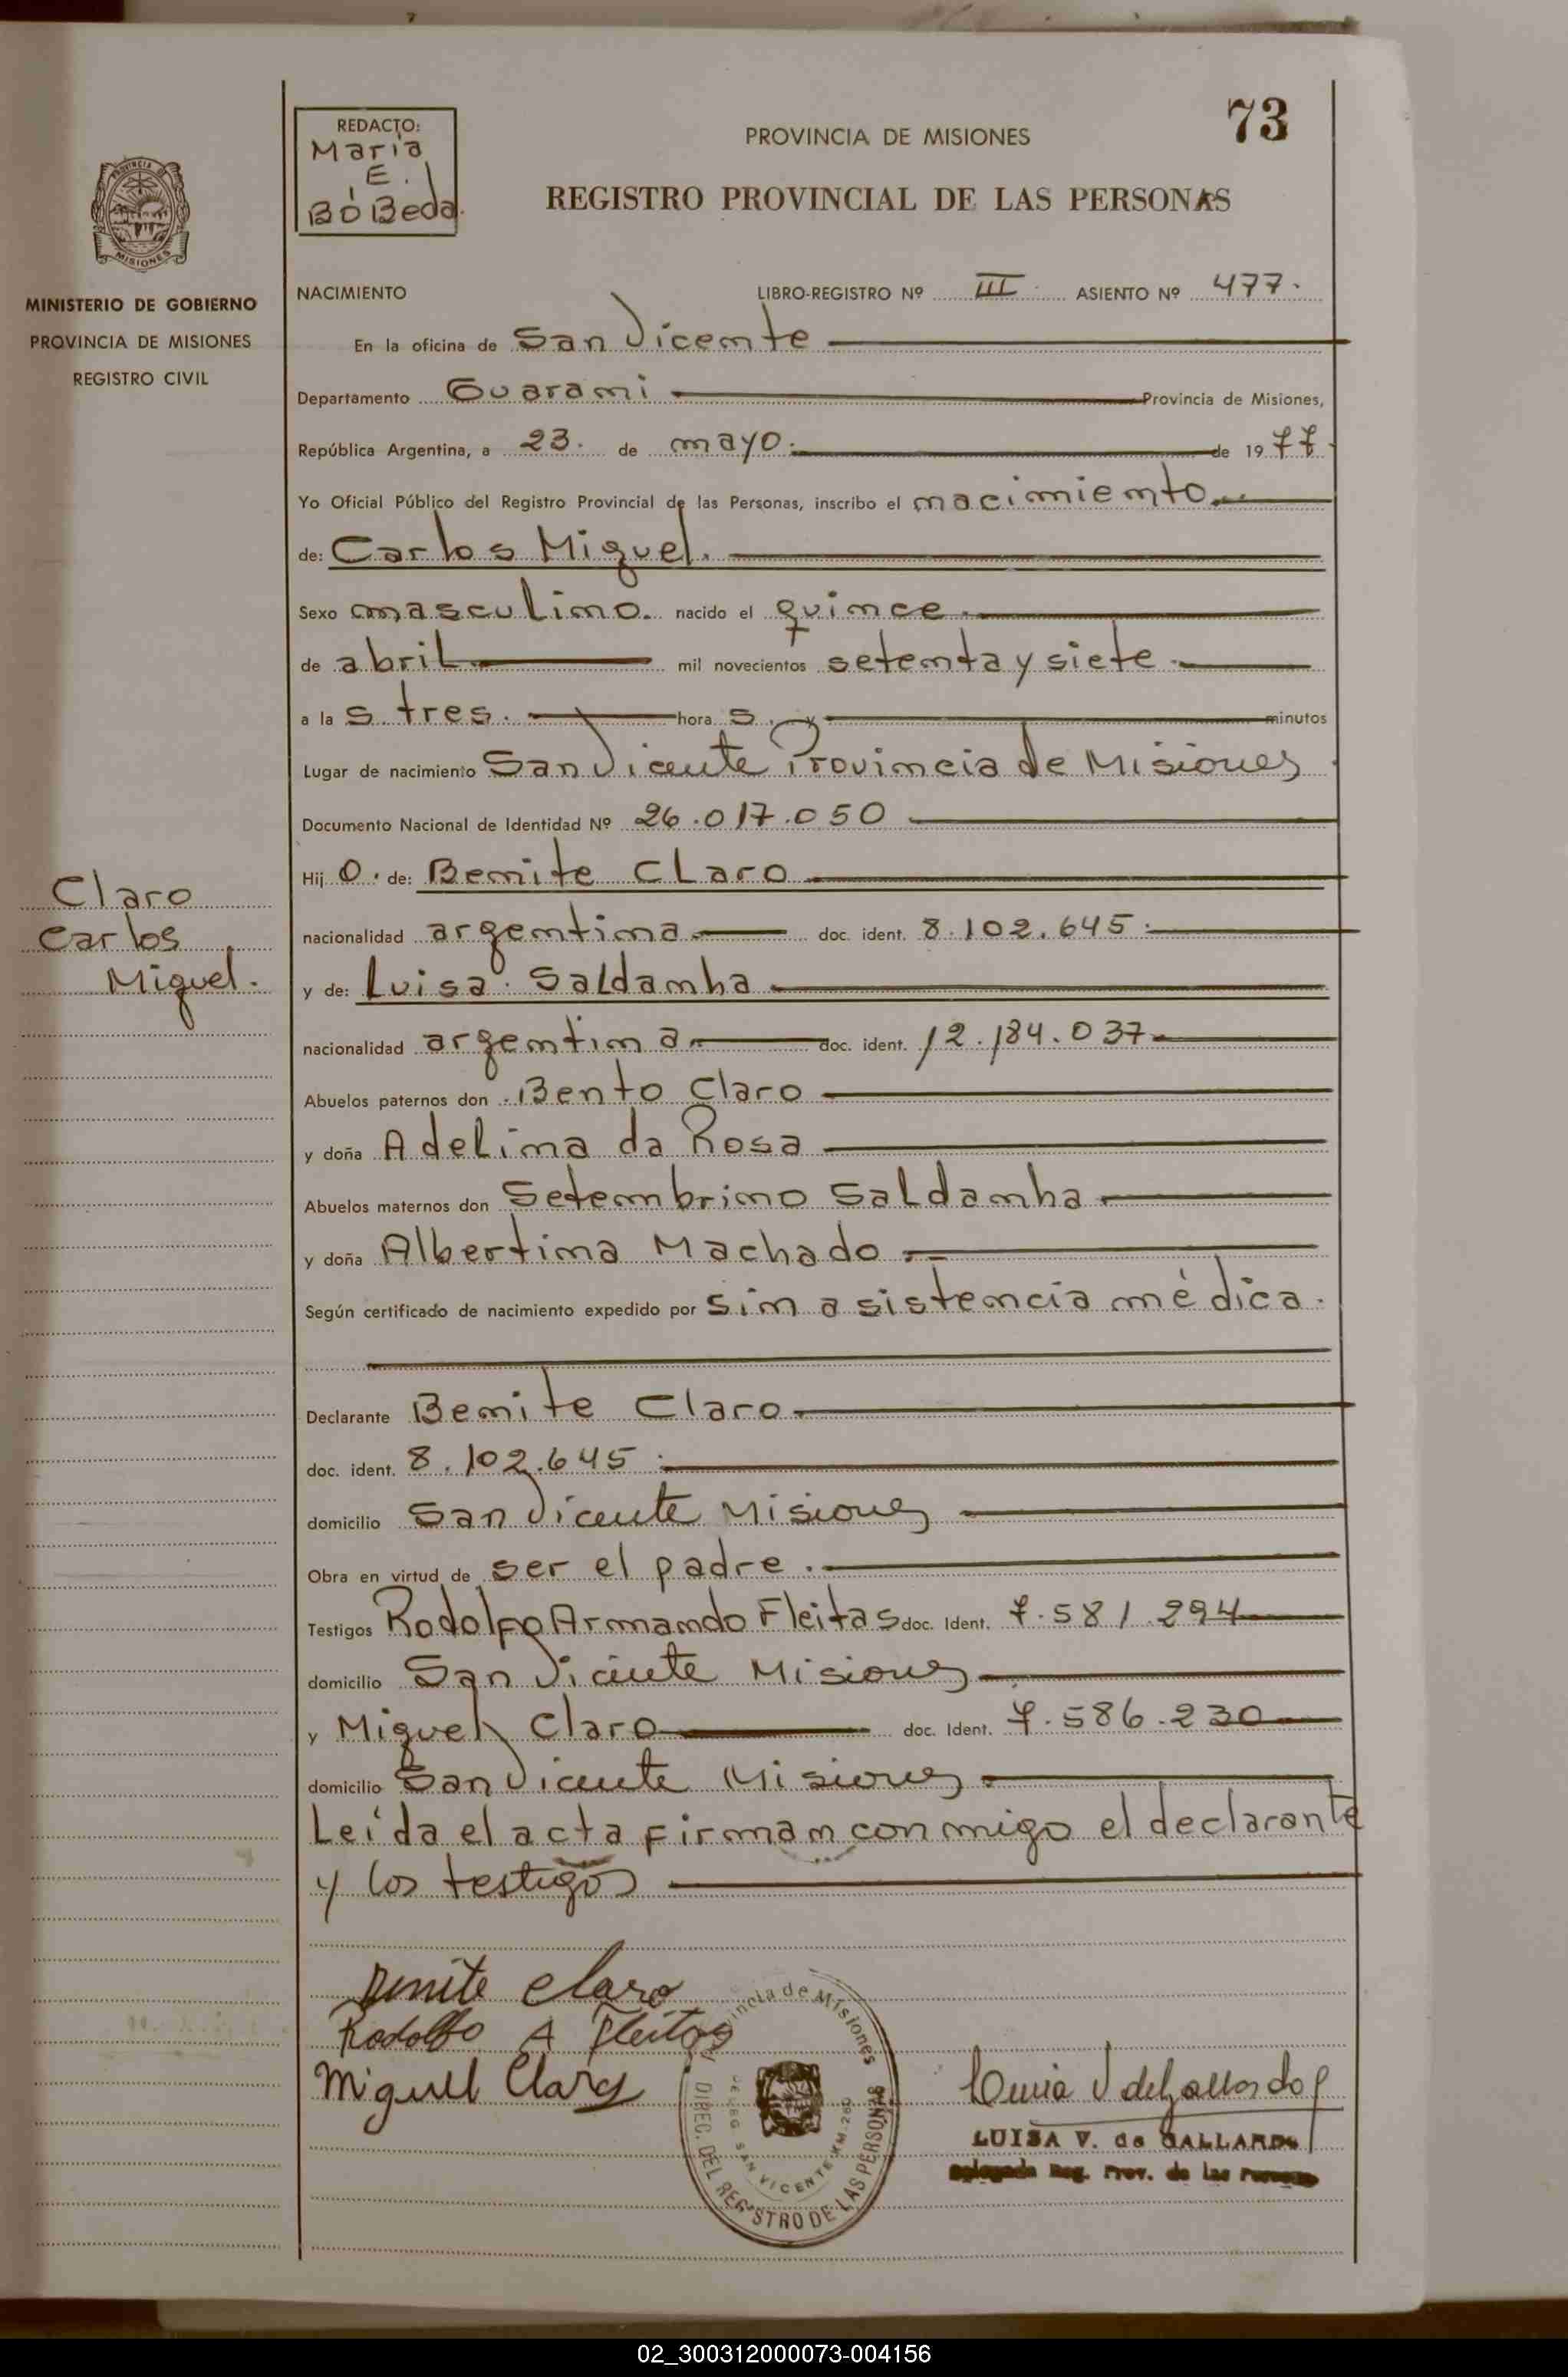 73
REDACTO:
Maria
E.
BóBeda.
PROVINCIA DE MISIONES
REGISTRO PROVINCIAL DE LAS PERSONAS
PROVINCIA DE
MISIONES
MINISTERIO DE GOBIERNO
PROVINCIA DE MISIONES
REGISTRO CIVIL
NACIMIENTO LIBRO-REGISTRO Nº III. ASIENTO Nº 477.
En la oficina de San Vicente
Departamento Guarani Provincia de Misiones,
República Argentina, a 23. de mayo. de 1977.
Yo Oficial Público del Registro Provincial de las Personas, inscribo el nacimiento
de: Carlos Miguel.
Sexo masculino. nacido el quince.
de abril mil novecientos setenta y siete
a las tres. horas. y minutos
Lugar de nacimiento San Vicente Provincia de Misiones
Documento Nacional de Identidad Nº 26.017.050
Hijo. de: Benite Claro
nacionalidad argentina doc. ident. 8.102.645
y de: Luisa Saldanha
nacionalidad argentina doc. ident. 12.184.037
Abuelos paternos don Bento Claro
y doña Adelina da Rosa
Abuelos maternos don Setembrino Saldanha
y doña Albertina Machado
Según certificado de nacimiento expedido por sin asistencia médica.
Declarante Benite Claro
doc. ident. 8.102.645
domicilio San Vicente Misiones
Obra en virtud de ser el padre.
Testigos Rodolfo Armando Fleitas doc. Ident. 7.581.294
domicilio San Vicente Misiones
y Miguel Claro doc. Ident. 7.586.230
domicilio San Vicente Misiones
Leída el acta firman conmigo el declarante
y los testigos
Claro
Carlos
Miguel.
Benite Claro
Rodolfo A Fleitas
Miguel Claro
Provincia de Misiones
DIREC. DEL REGISTRO DE LAS PERSONAS
DELEG. SAN VICENTE KM. 260
Luisa V de Gallardo
LUISA V. de GALLARDO
Delegada Reg. Prov. de las Personas
02_300312000073-004156